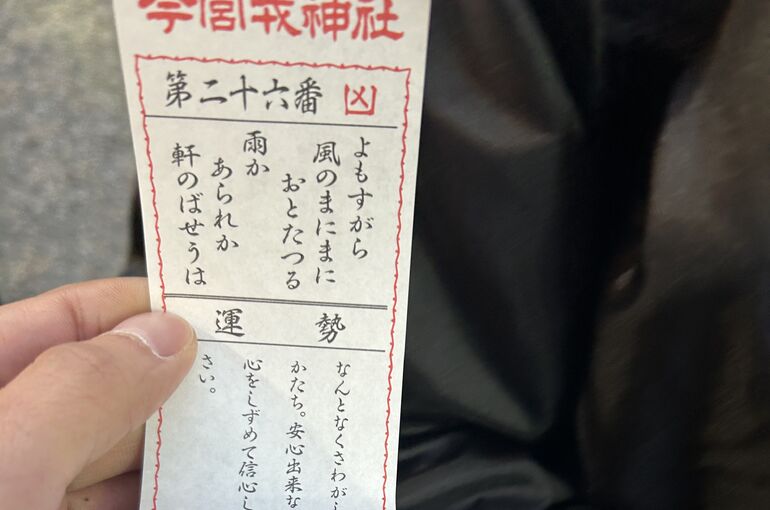 今宮戎神社
第二十六番 凶
よもすがら
風のまにまに
おとたつる
雨か
あられか
軒のばせうは
運勢
なんとなくさわがし
かたち。安心出来な
心をしずめて信心し
さい。